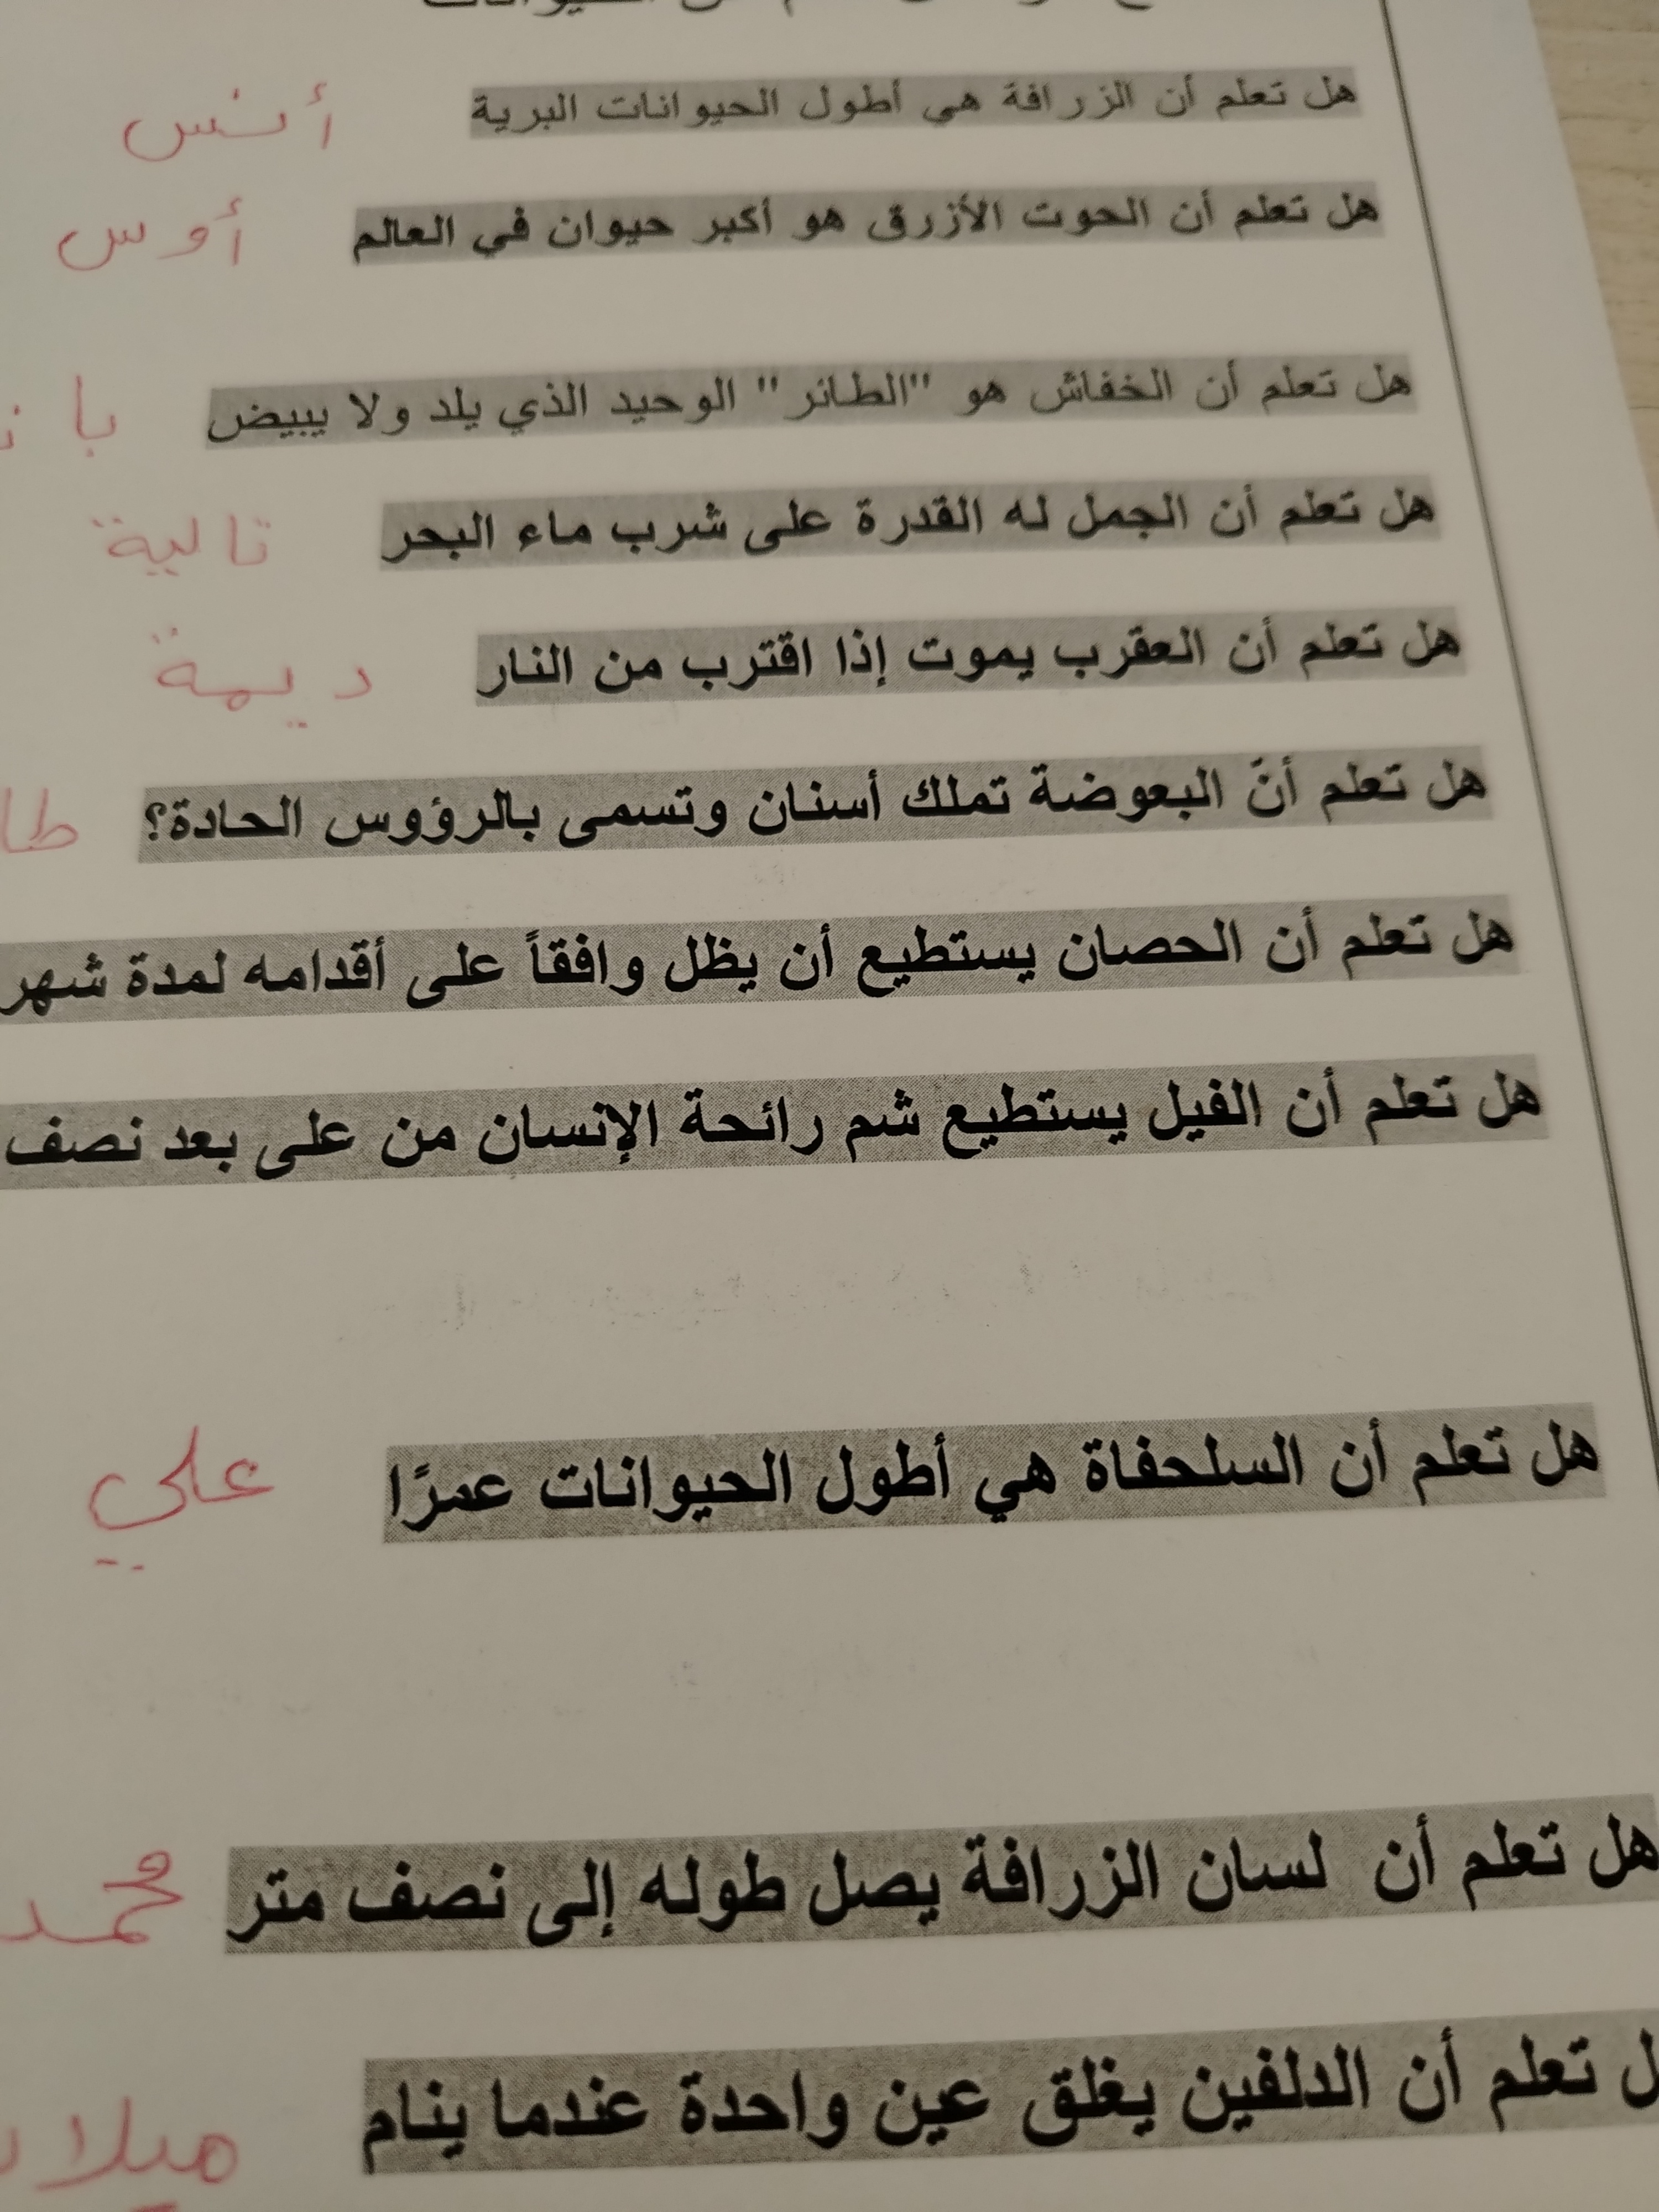 هل تعلم أن الزرافة هي أطول الحيوانات البرية أنس
هل تعلم أن الحوت الأزرق هو أكبر حيوان في العالم أوس
هل تعلم أن الخفاش هو "الطائر" الوحيد الذي يلد ولا يبيض
هل تعلم أن الجمل له القدرة على شرب ماء البحر تالية
هل تعلم أن العقرب يموت إذا اقترب من النار ديمة
هل تعلم أنّ البعوضة تملك أسنان وتسمى بالرؤوس الحادة؟
هل تعلم أن الحصان يستطيع أن يظل وافقاً على أقدامه لمدة شهر
هل تعلم أن الفيل يستطيع شم رائحة الإنسان من على بعد نصف
هل تعلم أن السلحفاة هي أطول الحيوانات عمرًا علي
هل تعلم أن لسان الزرافة يصل طوله إلى نصف متر محمد
تعلم أن الدلفين يغلق عين واحدة عندما ينام